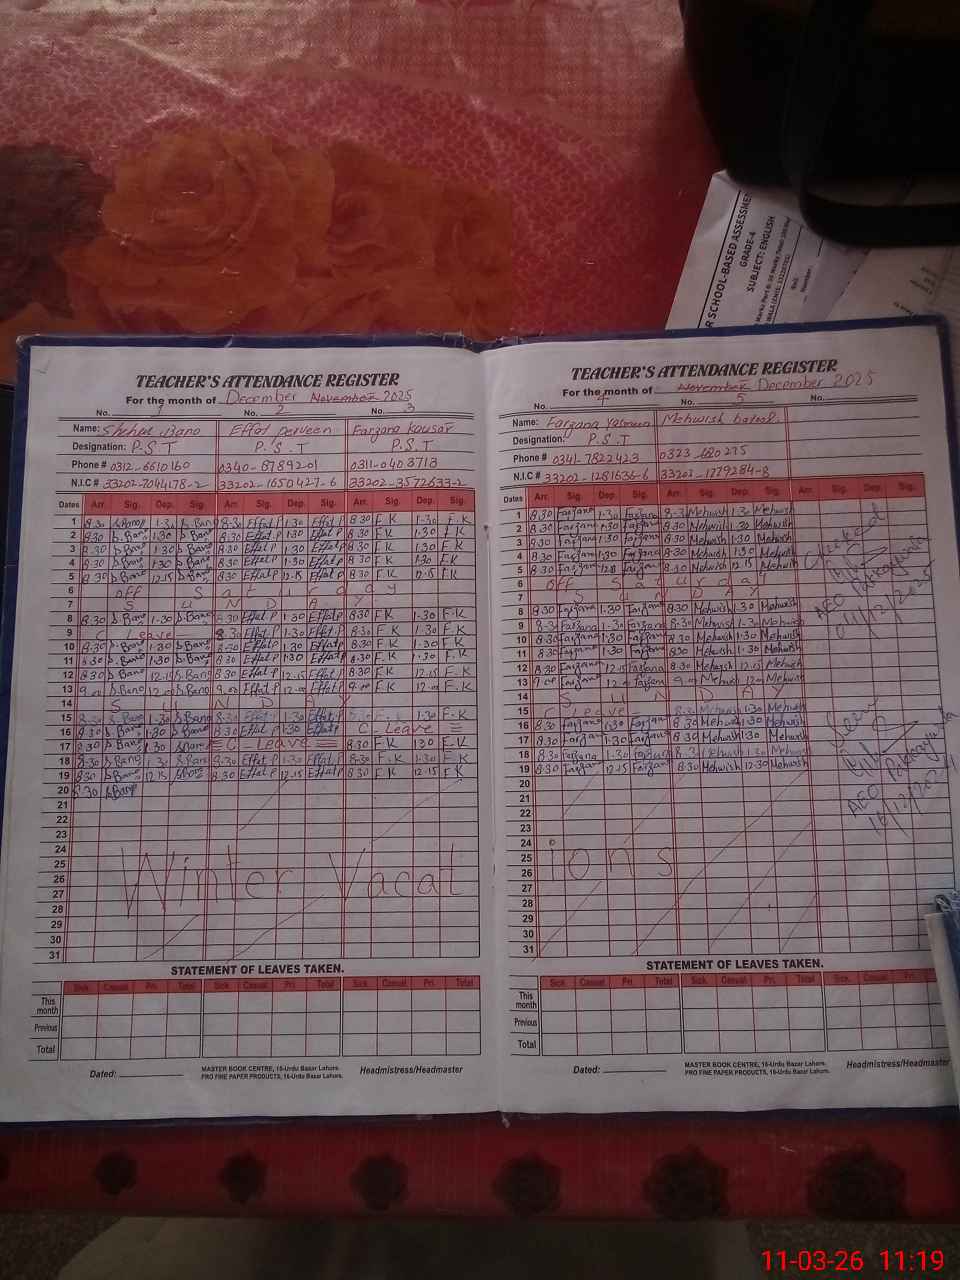 R SCHOOL-BASED ASSESSMEN
GRADE-4
SUBJECT: ENGLISH
TEACHER'S ATTENDANCE REGISTER
For the month of December November 2025
No. 1 No. 2 No. 3
Name: Shehla Bano Effat perveen Farzana Kousar
Designation: P.S.T P.S.T P.S.T
Phone # 0312-6610160 0340-8789201 0311-0403713
N.I.C # 33202-7044178-2 33202-1650427-6 33202-3572633-2
Dates Arr. Sig. Dep. Sig. Arr. Sig. Dep. Sig. Arr. Sig. Dep. Sig.
1 8:30 S.Bano 1:30 S.Bano 8:30 Effat P 1:30 Effat P 8:30 F.K 1-30 F.K
2 8:30 S.Bano 1:30 S.Bano 8:30 Effat P 1:30 Effat P 8:30 F.K 1-30 F.K
3 8:30 S.Bano 1:30 S.Bano 8:30 Effat P 1:30 Effat P 8:30 F.K 1-30 F.K
4 8:30 S.Bano 1:30 S.Bano 8:30 Effat P 1:30 Effat P 8:30 F.K 1-30 F.K
5 8:30 S.Bano 12-15 S.Bano 8:30 Effat P 12-15 Effat P 8:30 F.K 12-15 F.K
6 off Saturday
7 SUNDAY
8 8:30 S.Bano 1-30 S.Bano 8:30 Effat P 1-30 Effat P 8:30 F.K 1-30 F.K
9 C Leave 8:30 Effat P 1-30 Effat P 8:30 F.K 1-30 F.K
10 8:30 S.Bano 1-30 S.Bano 8:30 Effat P 1-30 Effat P 8:30 F.K 1-30 F.K
11 8:30 S.Bano 1-30 S.Bano 8:30 Effat P 1:30 Effat P 8:30 F.K 1-30 F.K
12 8:30 S.Bano 12-15 S.Bano 8:30 Effat P 12-15 Effat P 8:30 F.K 12-15 F.K
13 9:00 S.Bano 12:00 S.Bano 9:00 Effat P 12:00 Effat P 9:00 F.K 12:00 F.K
14 SUNDAY
15 8:30 S.Bano 1-30 S.Bano 8:30 Effat P 1:30 Effat P F.K 1-30 F.K
16 8:30 S.Bano 1:30 S.Bano 8:30 Effat P 1:30 Effat P C-Leave
17 8:30 S.Bano 1:30 S.Bano C-Leave 8:30 F.K 1:30 F.K
18 8:30 S.Bano 1:30 S.Bano 8:30 Effat P 1:30 Effat P 8:30 F.K 1-30 F.K
19 8:30 S.Bano 12:15 8:30 Effat P 12-15 Effat P 8:30 F.K 12-15 F.K
20 8:30 S.Bano
21
22
23
24
25 Winter Vacat
26
27
28
29
30
31
STATEMENT OF LEAVES TAKEN.
Sick Casual Pri. Total Sick Casual Pri. Total Sick Casual Pri. Total
This month
Previous
Total
Dated:
MASTER BOOK CENTRE, 16-Urdu Bazar Lahore.
PRO FINE PAPER PRODUCTS, 16-Urdu Bazar Lahore.
Headmistress/Headmaster
TEACHER'S ATTENDANCE REGISTER
For the month of November December 2025
No. 4 No. 5
Name: Farzana Yasmeen Mehwish batool
Designation: P.S.T
Phone # 0341-7822423 0323-680275
N.I.C # 33202-1281636-6 33203-1779284-8
Dates Arr. Sig. Dep. Sig. Arr. Sig. Dep. Sig. Arr. Sig. Dep. Sig.
1 8:30 Farzana 1:30 Farzana 8:30 Mehwish 1:30 Mehwish
2 8:30 Farzana 1:30 Farzana 8:30 Mehwish 1:30 Mehwish
3 8:30 Farzana 1:30 Farzana 8:30 Mehwish 1:30 Mehwish
4 8:30 Farzana 1:30 Farzana 8:30 Mehwish 1:30 Mehwish
5 8:30 Farzana Farzana 8:30 Mehwish 12:15 Mehwish
6 off Saturday
7 SUNDAY
8 8:30 Farzana 1-30 Farzana 8:30 Mehwish 1-30 Mehwish
9 8:30 Farzana 1-30 Farzana 8:30 Mehwish 1-30 Mehwish
10 8:30 Farzana 1:30 Farzana 8:30 Mehwish 1:30 Mehwish
11 8:30 Farzana 1:30 Farzana 8:30 Mehwish 1:30 Mehwish
12 8:30 Farzana 12-15 Farzana 8:30 Mehwish 12-15 Mehwish
13 9:00 Farzana 12:00 Farzana 9:00 Mehwish 12:00 Mehwish
14 SUNDAY
15 C Leave 8:30 Mehwish 1:30 Mehwish
16 8:30 Farzana 1:30 Farzana 8:30 Mehwish 1:30 Mehwish
17 8:30 Farzana 1:30 Farzana 8:30 Mehwish 1:30 Mehwish
18 8:30 Farzana 1:30 Farzana 8:30 Mehwish 1:30 Mehwish
19 8:30 Farzana 12:15 Farzana 8:30 Mehwish 12-30 Mehwish
20
21
22
23
24
25 ions
26
27
28
29
30
31
Checked
AEO
Seen
AEO
16/12/2025
STATEMENT OF LEAVES TAKEN.
Sick. Casual Pri. Total Sick Casual Pri. Total Sick Casual Pri.
This month
Previous
Total
Dated:
MASTER BOOK CENTRE, 16-Urdu Bazar Lahore.
PRO FINE PAPER PRODUCTS, 16-Urdu Bazar Lahore.
Headmistress/Headmaster
11-03-26 11:19